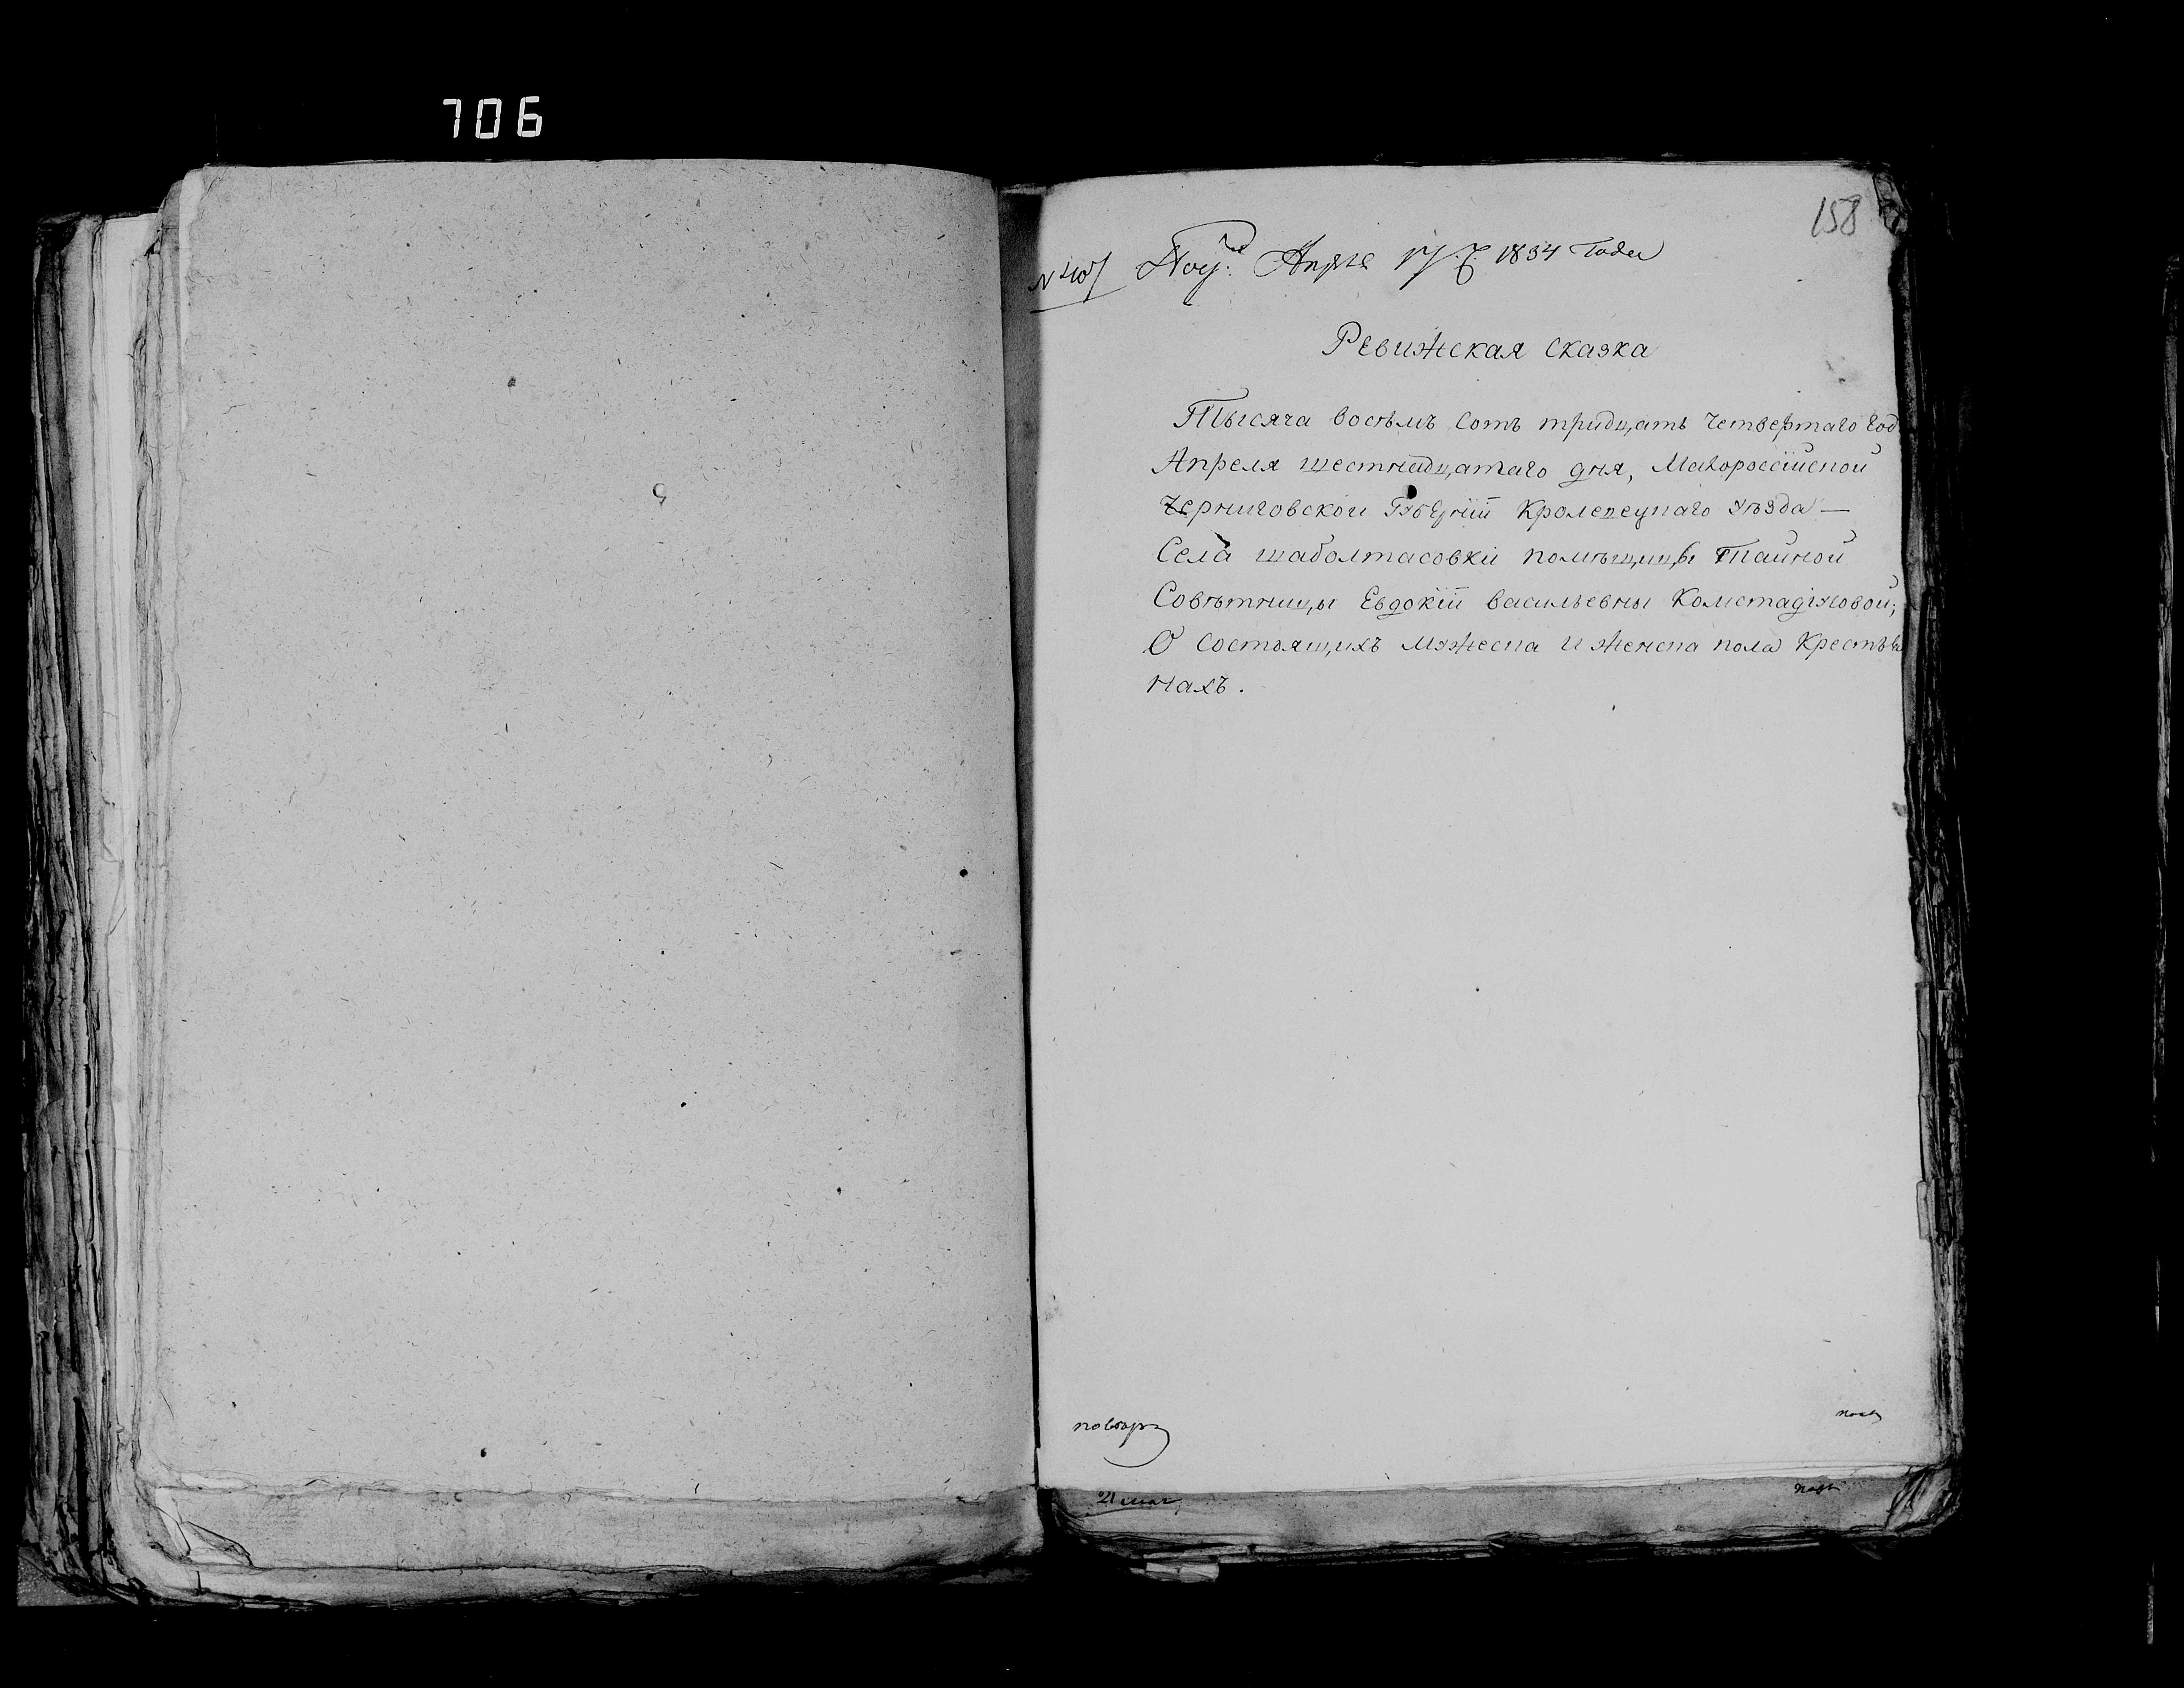 706
158
Апрля 17. 1834 Года
Ревижская сказка
Тысяча восемъ Сотъ тридцать Четвертаго Год
Апреля шестнадцатаго дня, Малороссїйской
Черниговской Губернїи Кролевецкаго уѣзда —
Села шаболтасовки помѣщицы Тайной
Совѣтницы Евдокїи васильевны
О Состоящихъ мужеска и женска пола Крестья
нахъ.